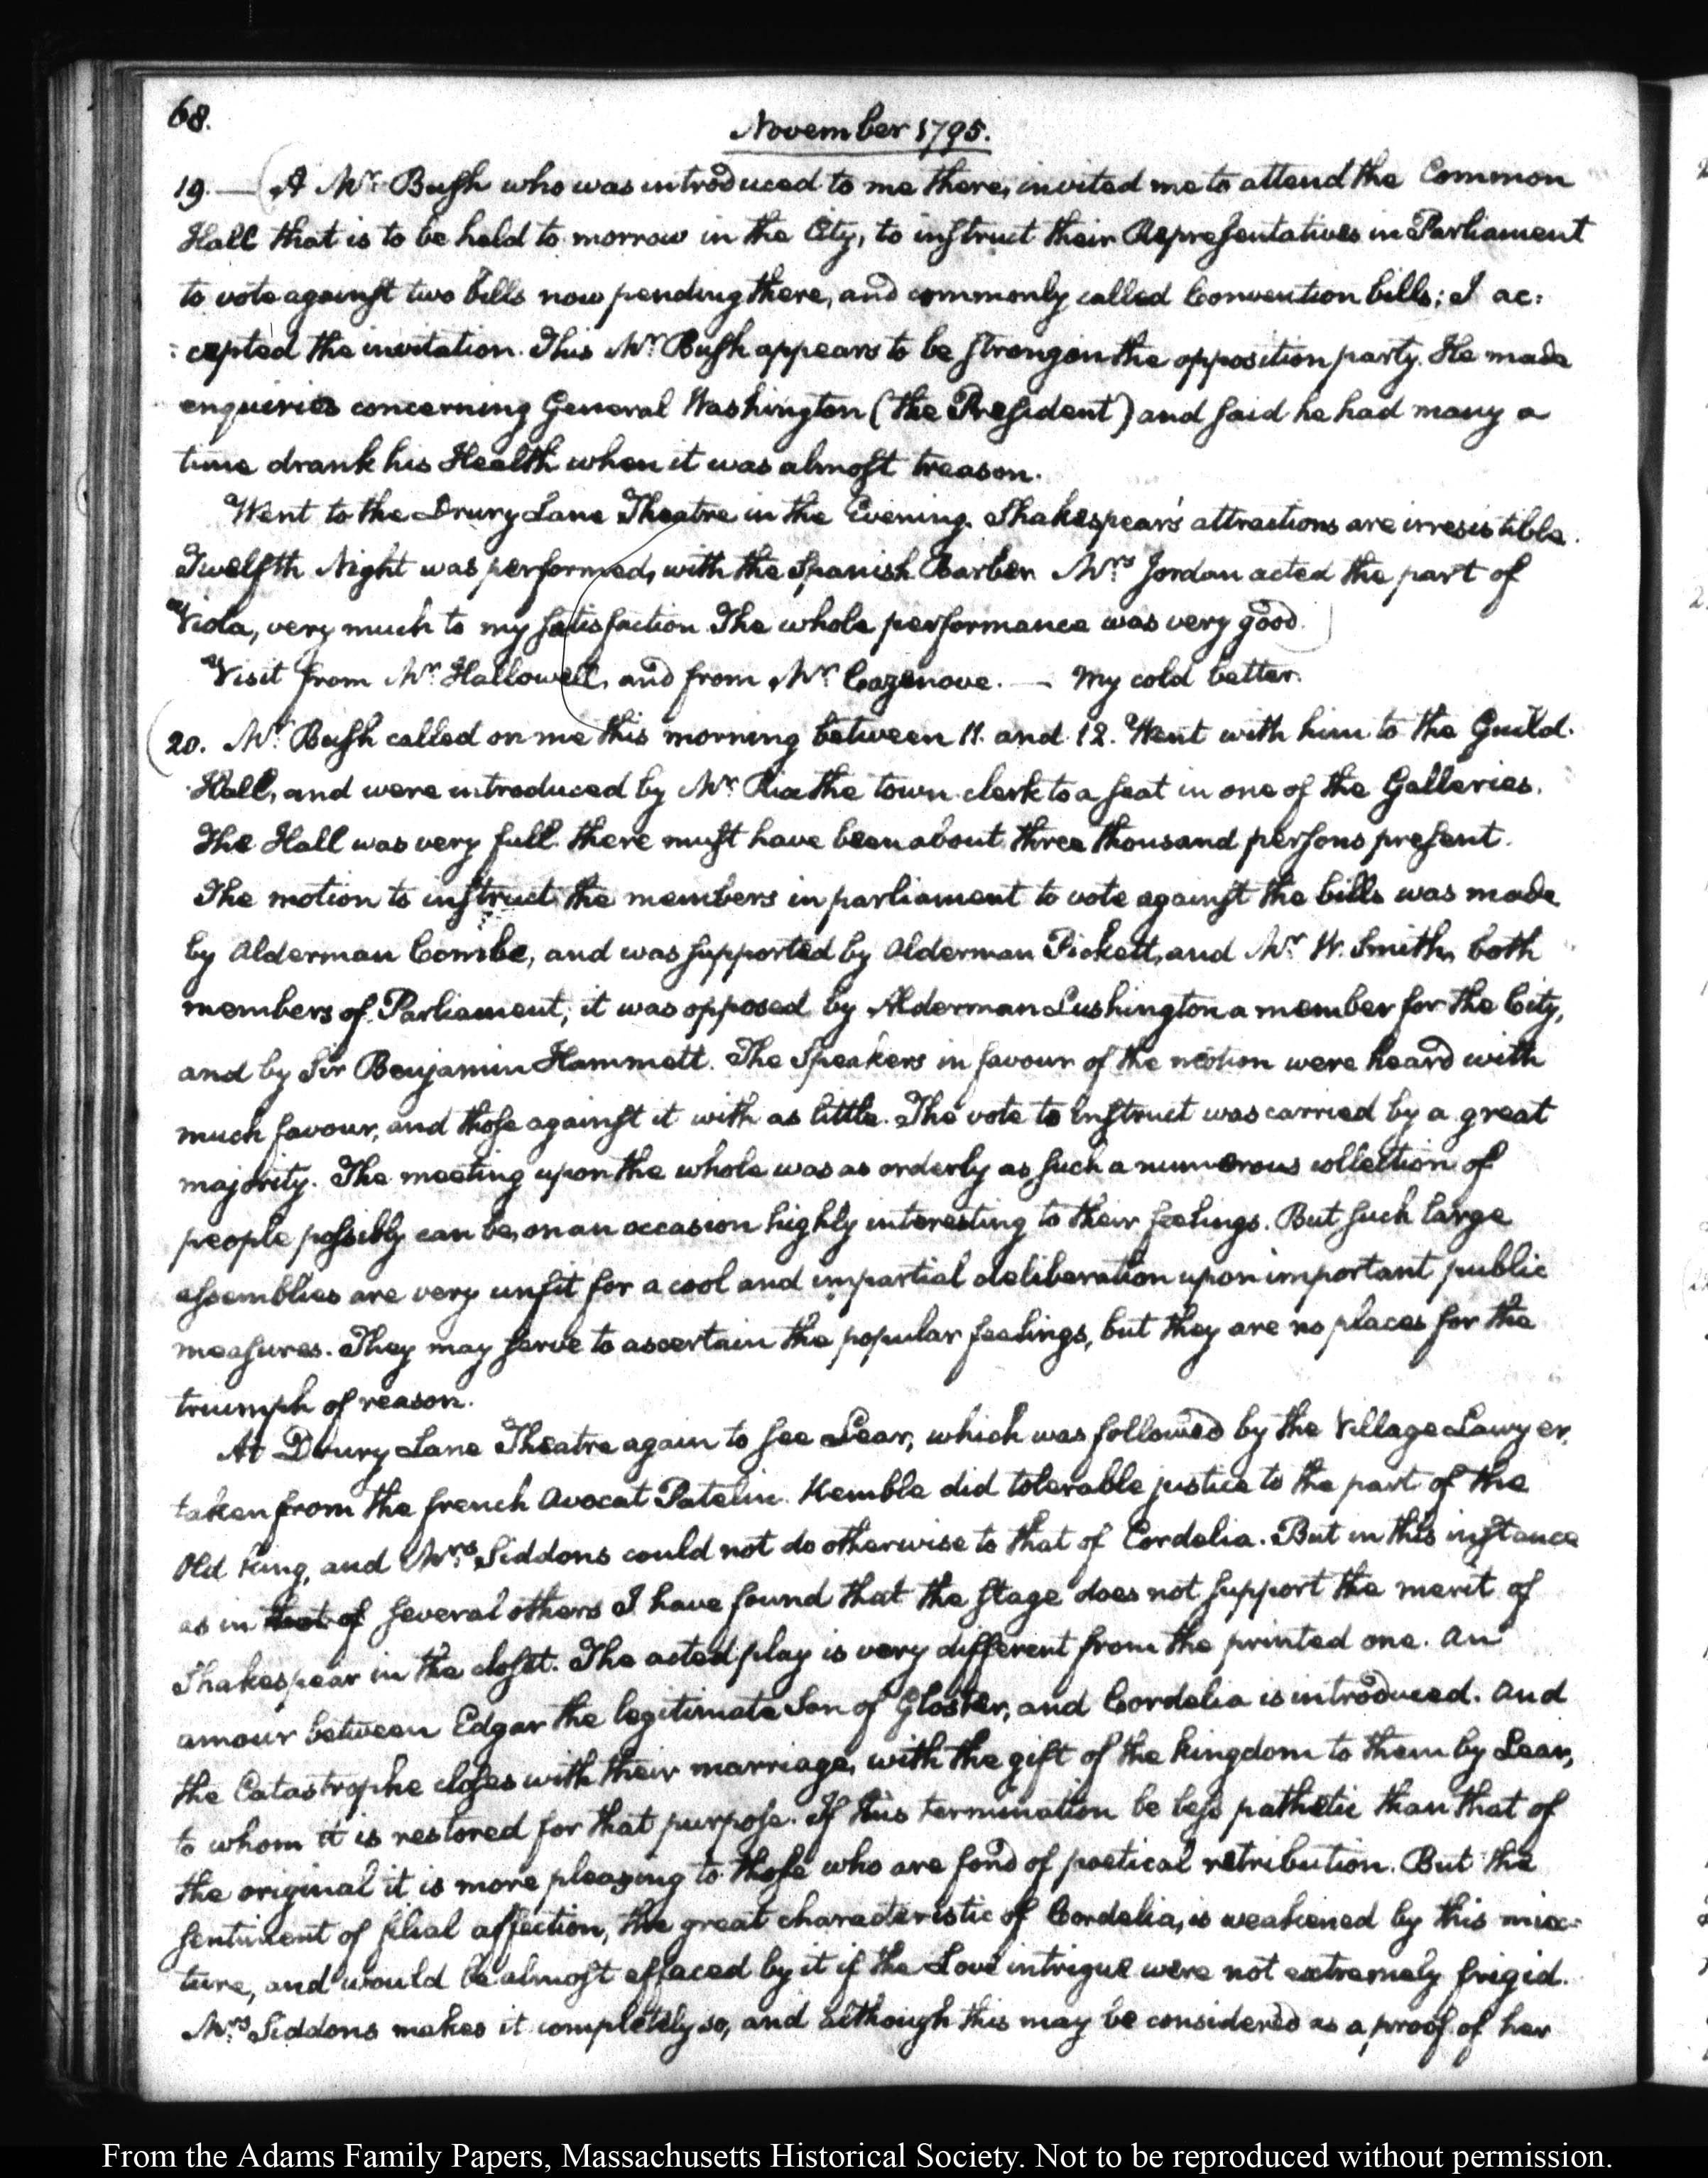 68.
November 1795.
19. — (A Mr. Bush who was introduced to me there, invited me to attend the Common
Hall that is to be held to morrow in the City, to instruct their Representatives in Parliament
to vote against two bills now pending there, and commonly called Convention bills; I ac:
:cepted the invitation. This Mr. Bush appears to be strong in the opposition party. He made
enquiries concerning General Washington (the President) and said he had many a
time drank his Health when it was almost treason.
Went to the Drury Lane Theatre in the Evening. Shakespear's attractions are irresistible.
Twelfth Night was performed, with the Spanish Barber. Mrs. Jordan acted the part of
Viola, very much to my satisfaction. The whole performance was very good.)
Visit from Mr. Hallowell, and from Mr. Cazenove. — My cold better.
(20. Mr. Bush called on me this morning between 11. and 12. Went with him to the Guild.
Hall, and were introduced by Mr. Rix the town clerk to a seat in one of the Galleries.
The Hall was very full. there must have been about three thousand persons present.
The motion to instruct the members in parliament to vote against the bills was made
by Alderman Combe, and was supported by Alderman Pickett, and Mr. W. Smith, both
members of Parliament; it was opposed by Alderman Lushington a member for the City,
and by Sir Benjamin Hammett. The Speakers in favour of the motion were heard with
much favour, and those against it with as little. The vote to instruct was carried by a great
majority. The meeting upon the whole was as orderly as such a numerous collection of
people possibly can be, on an occasion highly interesting to their feelings. But such large
assemblies are very unfit for a cool and impartial deliberation upon important public
measures. They may serve to ascertain the popular feelings, but they are no places for the
triumph of reason.
At Drury Lane Theatre again to see Lear, which was followed by the Village Lawyer,
taken from the french Avocat Patelin. Kemble did tolerable justice to the part of the
Old King, and Mrs. Siddons could not do otherwise to that of Cordelia. But in this instance
as in that of several others I have found that the stage does not support the merit of
Shakespear in the closet. The acted play is very different from the printed one. An
amour between Edgar the legitimate Son of Gloster, and Cordelia is introduced. And
the Catastrophe closes with their marriage, with the gift of the kingdom to them by Lear,
to whom it is restored for that purpose. If this termination be less pathetic than that of
the original it is more pleasing to those who are fond of poetical retribution. But the
sentiment of filial affection, the great characteristic of Cordelia, is weakened by this mix-
ture, and would be almost effaced by it if the Love intrigue were not extremely frigid.
Mrs. Siddons makes it completely so, and although this may be considered as a proof of her
From the Adams Family Papers, Massachusetts Historical Society. Not to be reproduced without permission.